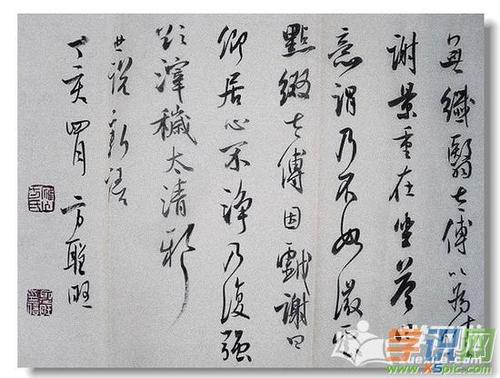 無纖翳太傅以為佳
謝景重在坐答曰
意謂乃不如微雲
點綴太傅因戲謝曰
卿居心不淨乃復強
欲滓穢太清邪
世說新語
丁亥四月 方
学识网
www.XSpic.com